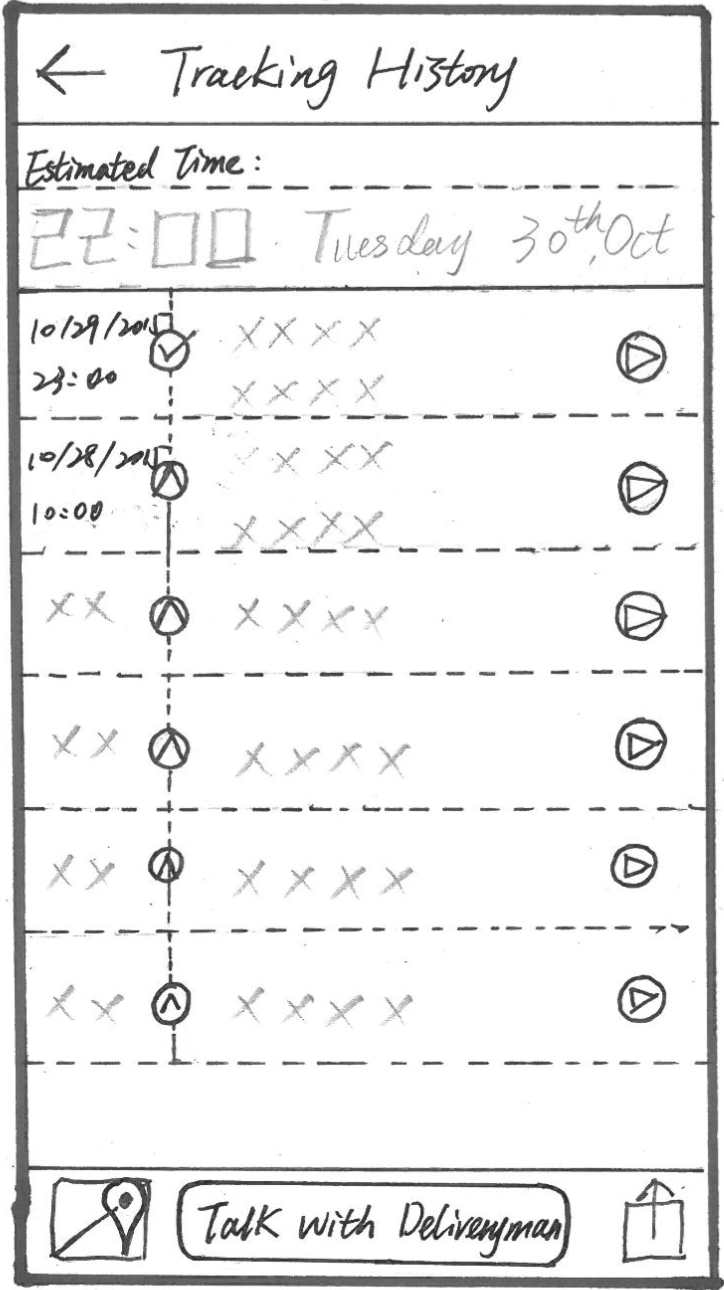 Tracking History
Estimated Time:
22:00 Tuesday 30th, Oct
10/29/2015 XXXX
23:00 XXXX
10/28/2015 XXXX
10:00 XXXX
XX XXXX
XX XXXX
XX XXXX
XX XXXX
Talk with Deliveryman